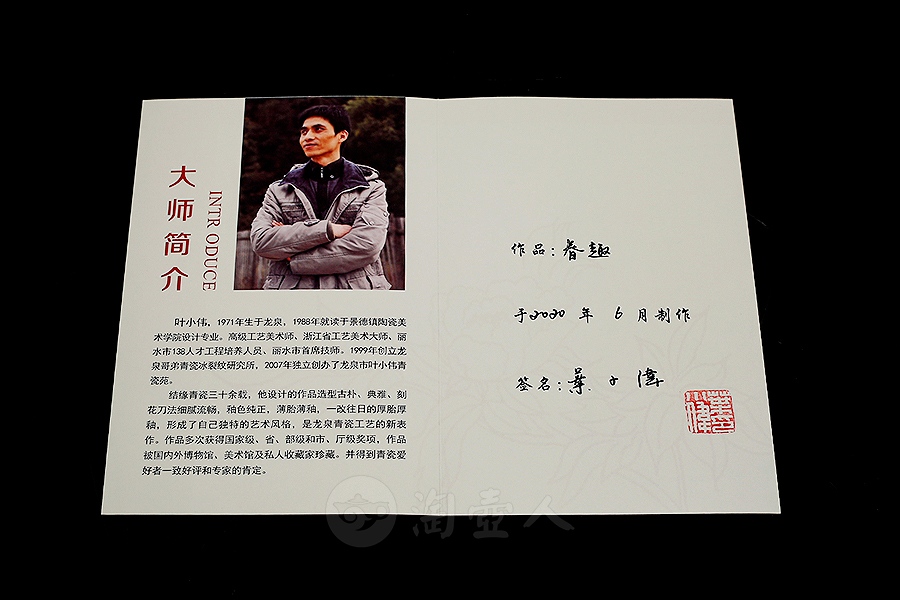 大师简介
INTRODUCE
叶小伟，1971年生于龙泉，1988年就读于景德镇陶瓷美
术学院设计专业。高级工艺美术师、浙江省工艺美术大师、丽
水市138人才工程培养人员、丽水市首席技师。1999年创立龙
泉哥弟青瓷冰裂纹研究所，2007年独立创办了龙泉市叶小伟青
瓷苑。
结缘青瓷三十余载，他设计的作品造型古朴、典雅、刻
花刀法细腻流畅，釉色纯正，薄胎薄釉，一改往日的厚胎厚
釉，形成了自己独特的艺术风格，是龙泉青瓷工艺的新表
作。作品多次获得国家级、省、部级和市、厅级奖项，作品
被国内外博物馆、美术馆及私人收藏家珍藏。并得到青瓷爱
好者一致好评和专家的肯定。
作品：春趣
于2020年6月制作
签名：葉小偉
淘壶人